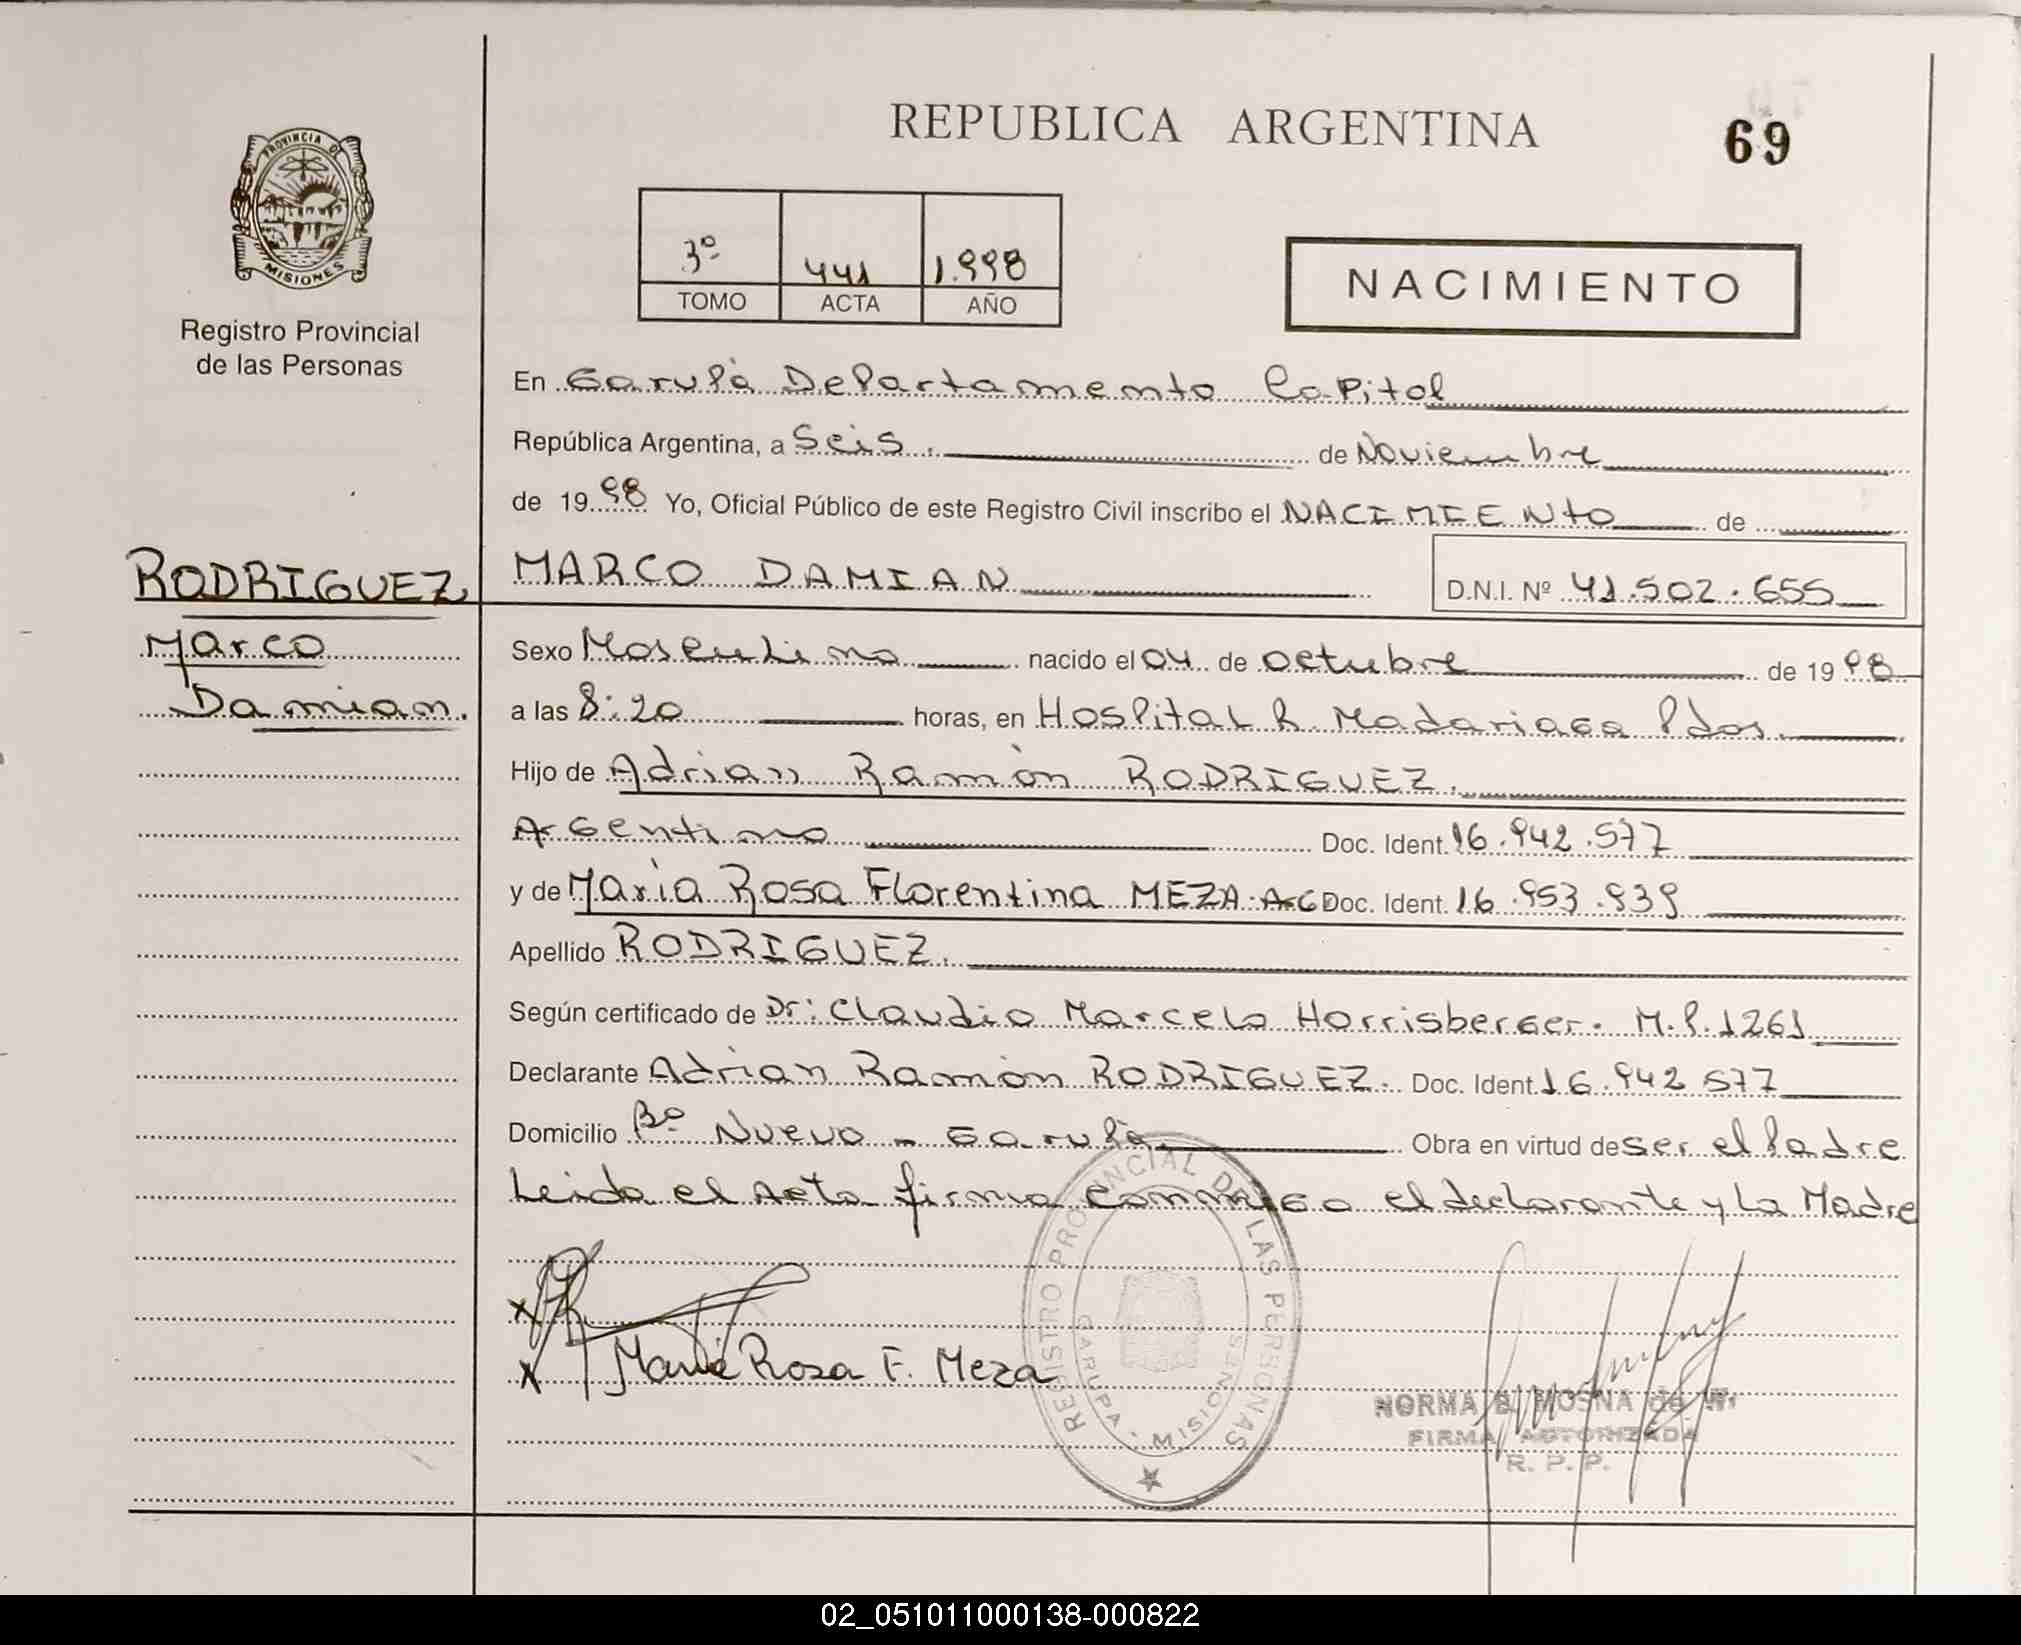 REPUBLICA ARGENTINA
69
PROVINCIA DE
MISIONES
Registro Provincial
de las Personas
3º 441 1.998
TOMO ACTA AÑO
NACIMIENTO
En Garupà Departamento Capital
República Argentina, a Seis. de Noviembre
de 1998 Yo, Oficial Público de este Registro Civil inscribo el NACIMIENTO de
RODRIGUEZ
MARCO DAMIAN D.N.I. Nº 41.502.655
Marco
Damian.
Sexo Masculino nacido el 04 de octubre de 1998
a las 8:20 horas, en Hospital R. Madariaga Pdas.
Hijo de Adrian Ramòn RODRIGUEZ.
Argentino Doc. Ident. 16.942.577
y de Marìa Rosa Florentina MEZA. Doc. Ident. 16.953.939
Apellido RODRIGUEZ.
Según certificado de Dr: Claudio Marcelo Horrisberger. M.P. 1261
Declarante Adrian Ramòn RODRIGUEZ. Doc. Ident. 16.942 577
Domicilio Bº Nuevo - Garupà. Obra en virtud de ser el Padre
Leida el Acta firma conmigo el declarante y La Madre
x
x Maria Rosa F. Meza
REGISTRO PROVINCIAL DE LAS PERSONAS
GARUPA - MISIONES
NORMA B. MOSNA de W.
FIRMA AUTORIZADA
R. P. P.
02_051011000138-000822